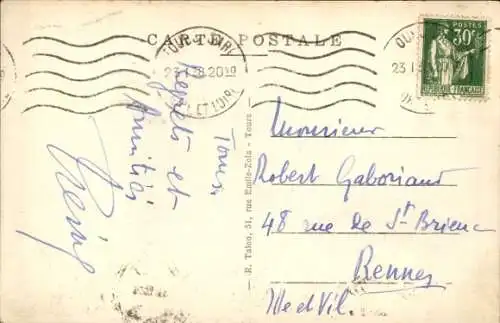 CARTE POSTALE
TOURS GARE
23 I 38 20
ET LOIRE
POSTES
30c
REPUBLIQUE FRANÇAISE
Tours,
Regrets et
Amitiés
R. Taloc, 51, rue Emile-Zola - Tours
Monsieur
Robert Gaboriaud
48 rue de St Brieuc
Rennes
Ille et Vil.